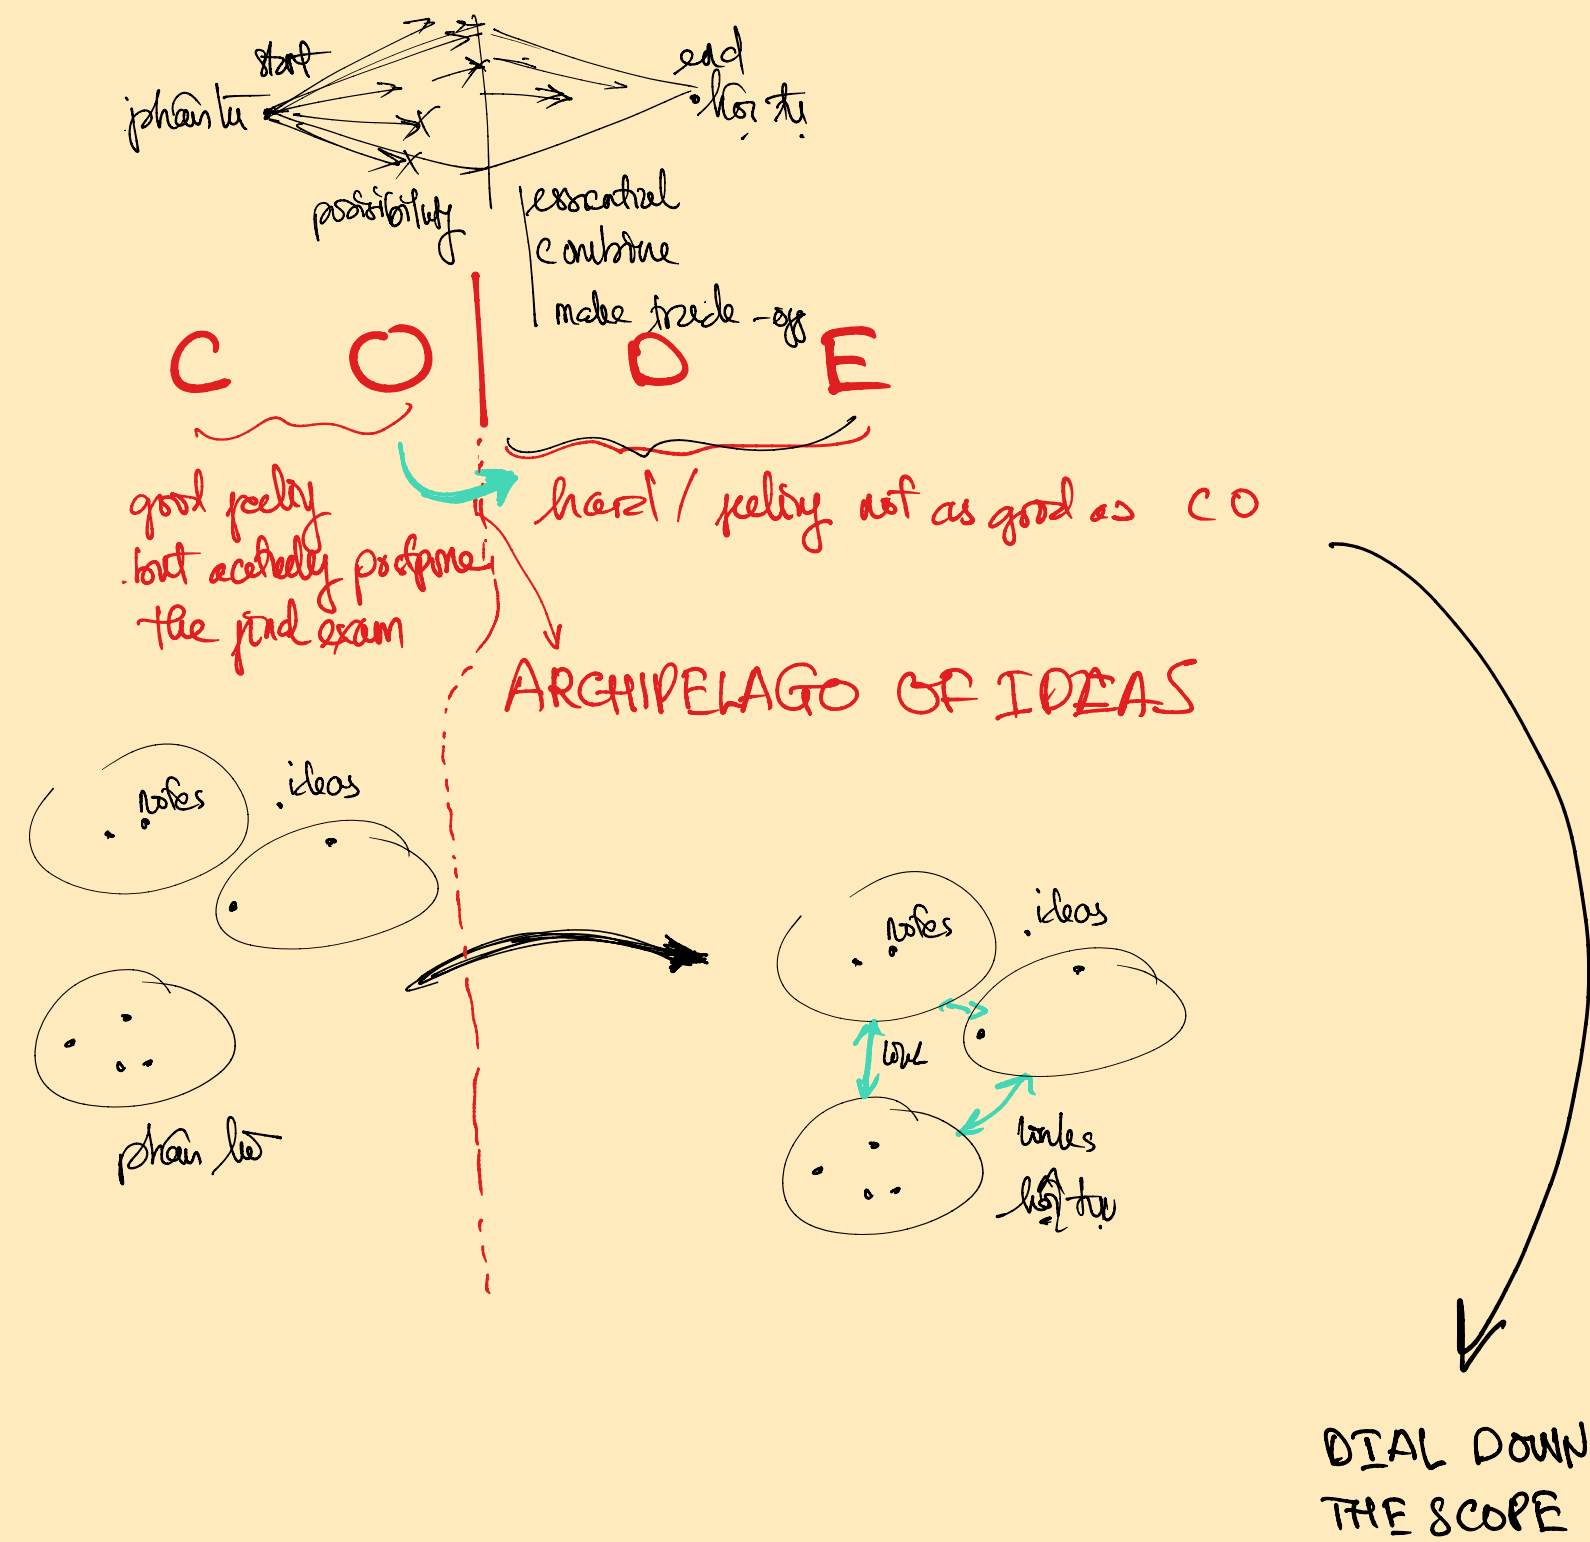 start
end
phân kì
hội tụ
possibility
essential
combine
make trade-off
C O D E
good feeling
but actually postpone
the final exam
hard / feeling not as good as CO
ARCHIPELAGO OF IDEAS
notes
ideas
phân kì
notes
ideas
link
links
hội tụ
DIAL DOWN
THE SCOPE